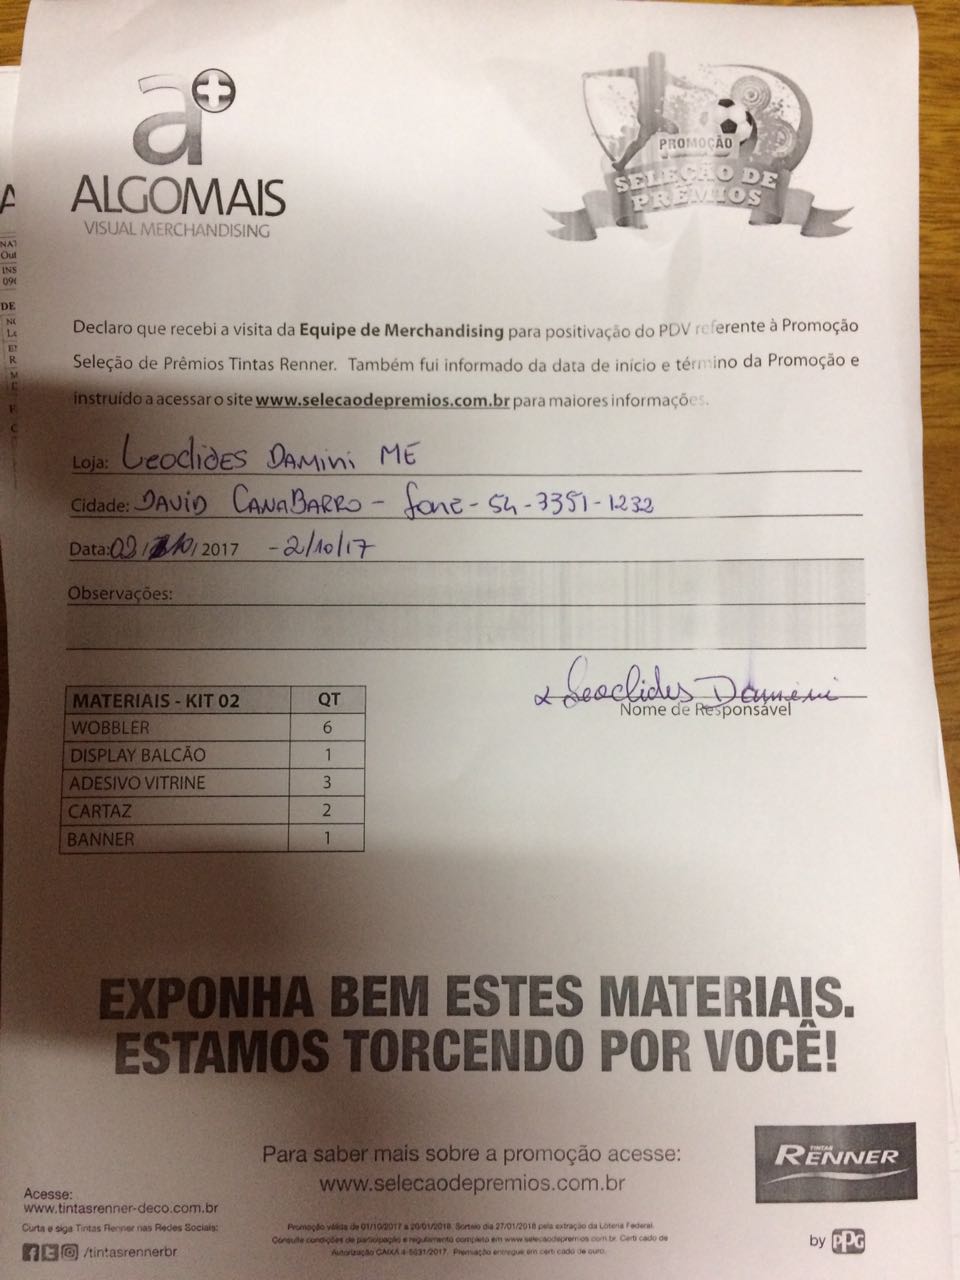 a+
ALGOMAIS
VISUAL MERCHANDISING
PROMOÇÃO
SELEÇÃO DE
PRÊMIOS
Declaro que recebi a visita da Equipe de Merchandising para positivação do PDV referente à Promoção
Seleção de Prêmios Tintas Renner. Também fui informado da data de início e término da Promoção e
instruído a acessar o site www.selecaodepremios.com.br para maiores informações.
Loja: Leoclides Damini ME
Cidade: David Canabarro - fone - 54 - 3351 - 1232
Data: 02/10/2017 - 2/10/17
Observações:
x Leoclides Damini
Nome de Responsável
MATERIAIS - KIT 02 QT
WOBBLER 6
DISPLAY BALCÃO 1
ADESIVO VITRINE 3
CARTAZ 2
BANNER 1
EXPONHA BEM ESTES MATERIAIS.
ESTAMOS TORCENDO POR VOCÊ!
Para saber mais sobre a promoção acesse:
www.selecaodepremios.com.br
TINTAS
RENNER
by PPG
Acesse:
www.tintasrenner-deco.com.br
Curta e siga Tintas Renner nas Redes Sociais:
/tintasrennerbr
Promoção válida de 01/10/2017 a 20/01/2018. Sorteio dia 27/01/2018 pela extração da Loteria Federal.
Consulte condições de participação e regulamento completo em www.selecaodepremios.com.br. Certificado de
Autorização CAIXA 4-5631/2017. Premiação entregue em certificado de ouro.